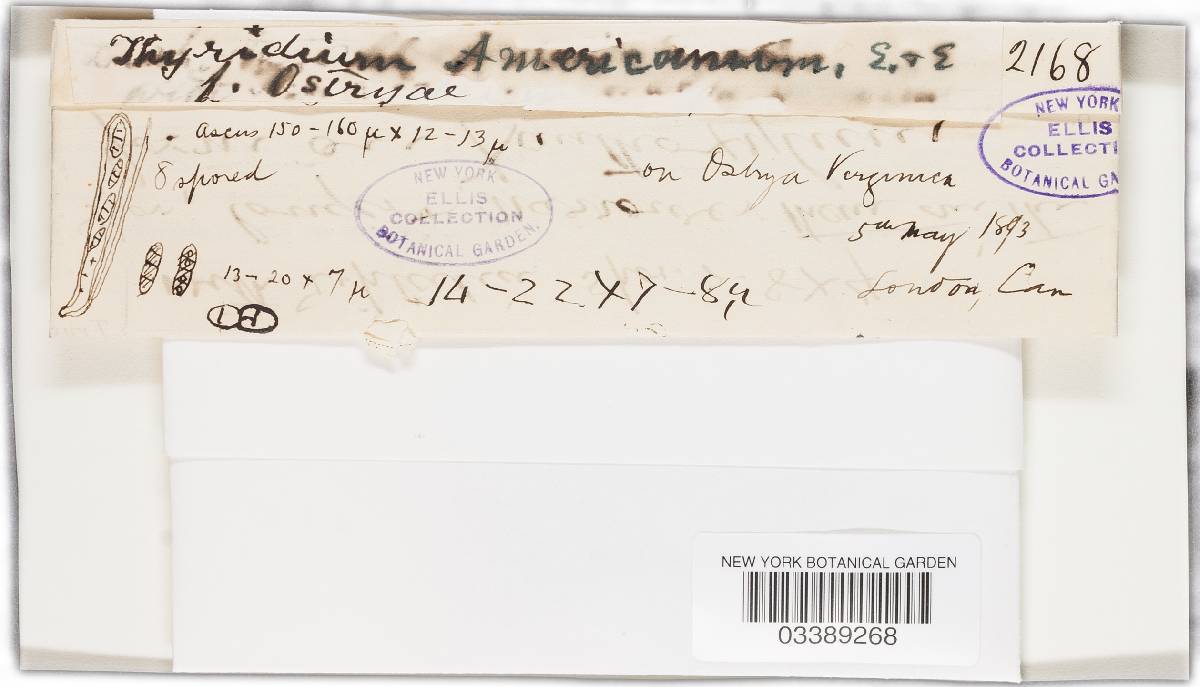 Thyridium Americanum, E. & E
f. Ostryae
2168
NEW YORK
ELLIS
COLLECTI
BOTANICAL GA
ascus 150-160 µ x 12-13 µ
8 spored
NEW YORK
ELLIS
COLLECTION
BOTANICAL GARDEN.
on Ostrya Virginica
5th May 1893
London, Can
13-20 x 7 µ
14-22 x 7-8 µ
NEW YORK BOTANICAL GARDEN
03389268